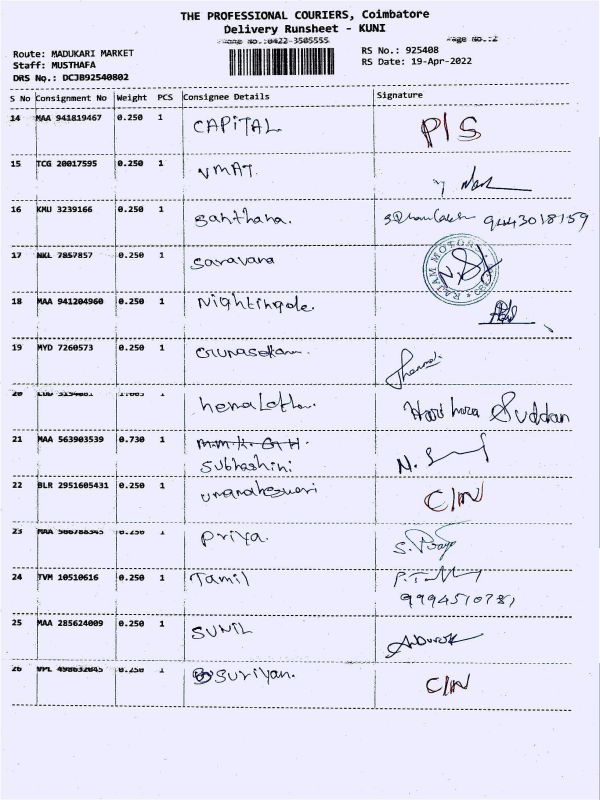 THE PROFESSIONAL COURIERS, Coimbatore
Delivery Runsheet - KUNI
Phone No.:0422-3505555 Page No.:2
Route: MADUKARI MARKET RS No.: 925408
Staff: MUSTHAFA RS Date: 19-Apr-2022
DRS No.: DCJB92540802
S No Consignment No Weight PCS Consignee Details Signature
14 MAA 941819467 0.250 1 CAPITAL P/S
15 TCG 20017595 0.250 1 VMAT
16 KMU 3239166 0.250 1 Santhana. 9443018159
17 NKL 7857857 0.250 1 Saravana RAJAM MOTORS
18 MAA 941204960 0.250 1 Nightingale.
19 MYD 7260573 0.250 1 Gunasekaran.
20 1.665 1 hemaLatha. Suddan
21 MAA 563903539 0.730 1
Subhashini N.
22 BLR 2951605431 0.250 1 umamaheswari C/N
23 MAA 566788345 0.250 1 Priya. S.
24 TVM 10510616 0.250 1 Tamil
9994510781
25 MAA 285624009 0.250 1 SUNIL
26 VPL 498632045 0.250 1 Suriyan. C/N